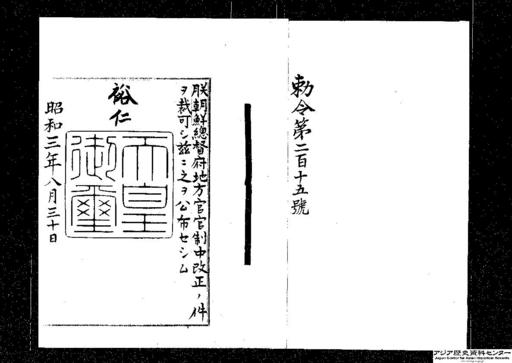 勅令第二百十五號
朕朝鮮總督府地方官官制中改正ノ件
ヲ裁可シ茲ニ之ヲ公布セシム
裕仁
天皇
御璽
昭和三年八月三十日
アジア歴史資料センター
Japan Center for Asian Historical Records